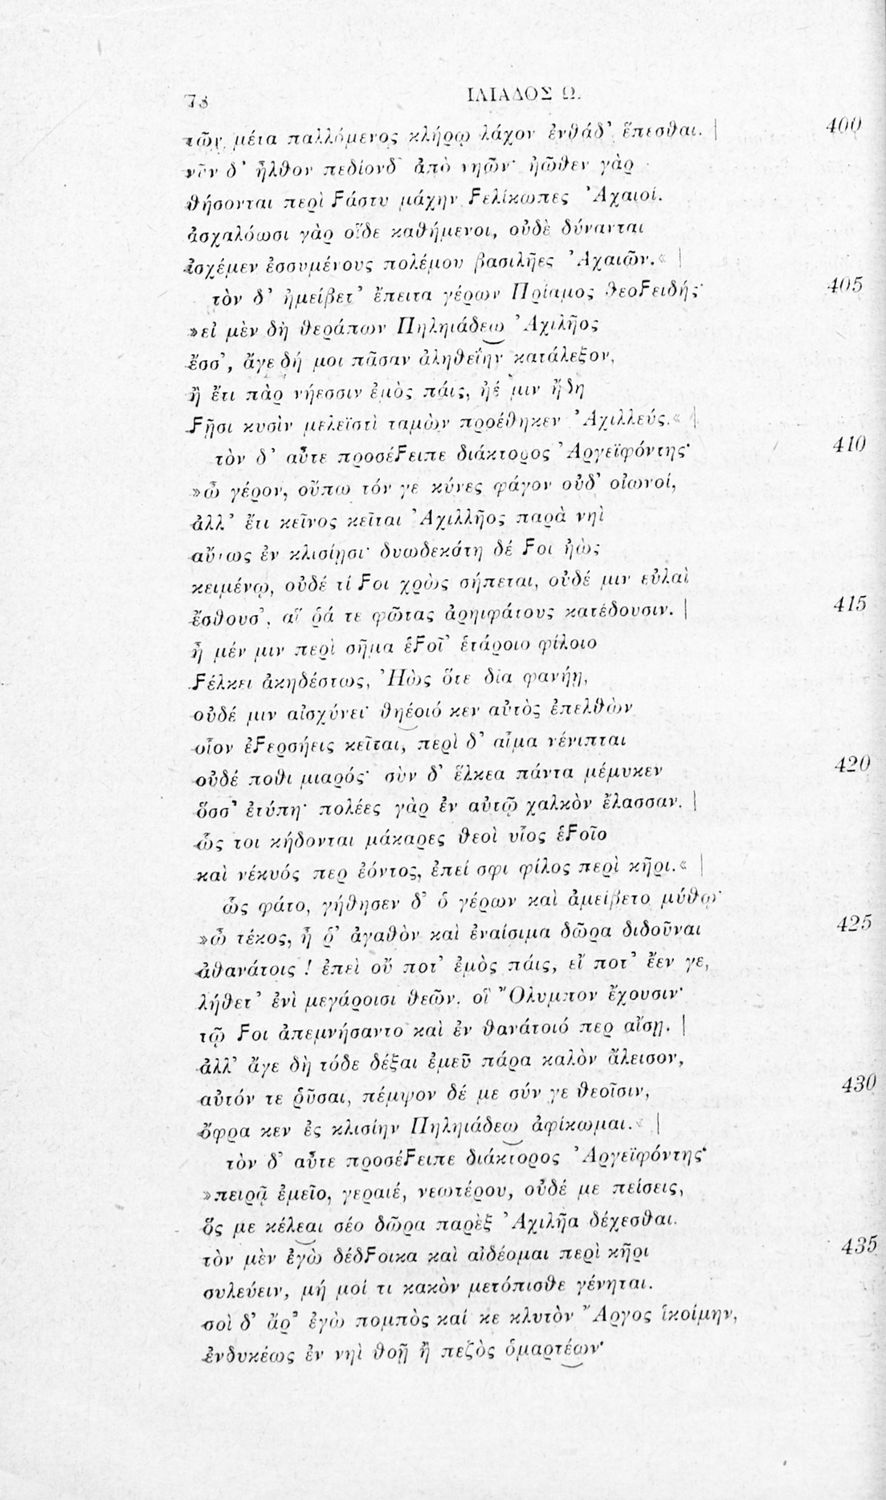 78 ΙΛΙΑΔΟΣ Ω.
τῶν μέτα παλλόμενος κλήρῳ λάχον ἐνθάδ' ἕπεσθαι. | 400
νῦν δ' ἦλθον πεδίονδ' ἀπὸ νηῶν· ἠῶθεν γὰρ
θήσονται περὶ Ϝάστυ μάχην Ϝελίκωπες Ἀχαιοί.
ἀσχαλόωσι γὰρ οἵδε καθήμενοι, οὐδὲ δύνανται
ἰσχέμεν ἐσσυμένους πολέμου βασιλῆες Ἀχαιῶν.« |
τὸν δ' ἠμείβετ' ἔπειτα γέρων Πρίαμος θεοϜειδής· 405
»εἰ μὲν δὴ θεράπων Πηληιάδεω Ἀχιλῆος
ἔσσ', ἄγε δή μοι πᾶσαν ἀληθείην κατάλεξον,
ἢ ἔτι πὰρ νήεσσιν ἐμὸς πάις, ἠέ μιν ἤδη
Ϝῇσι κυσὶν μελεϊστὶ ταμὼν προέθηκεν Ἀχιλλεύς.« |
τὸν δ' αὖτε προσέϜειπε διάκτορος Ἀργεϊφόντης· 410
»ὦ γέρον, οὔπω τόν γε κύνες φάγον οὐδ' οἰωνοί,
ἀλλ' ἔτι κεῖνος κεῖται Ἀχιλλῆος παρὰ νηὶ
αὔτως ἐν κλισίῃσι· δυωδεκάτη δέ Ϝοι ἠὼς
κειμένῳ, οὐδέ τί Ϝοι χρὼς σήπεται, οὐδέ μιν εὐλαὶ
ἔσθουσ', αἵ ῥά τε φῶτας ἀρηιφάτους κατέδουσιν. | 415
ἦ μέν μιν περὶ σῆμα ἑϜοῖ' ἑτάροιο φίλοιο
Ϝέλκει ἀκηδέστως, Ἠὼς ὅτε δῖα φανήῃ,
οὐδέ μιν αἰσχύνει· θηέοιό κεν αὐτὸς ἐπελθὼν
οἷον ἐϜερσήεις κεῖται, περὶ δ' αἷμα νένιπται
οὐδέ ποθι μιαρός· σὺν δ' ἕλκεα πάντα μέμυκεν 420
ὅσσ' ἐτύπη· πολέες γὰρ ἐν αὐτῷ χαλκὸν ἔλασσαν. |
ὥς τοι κήδονται μάκαρες θεοὶ υἷος ἑϜοῖο
καὶ νέκυός περ ἐόντος, ἐπεί σφι φίλος περὶ κῆρι.« |
ὣς φάτο, γήθησεν δ' ὁ γέρων καὶ ἀμείβετο μύθῳ·
»ὦ τέκος, ἦ ῥ' ἀγαθὸν καὶ ἐναίσιμα δῶρα διδοῦναι 425
ἀθανάτοις ! ἐπεὶ οὔ ποτ' ἐμὸς πάις, εἴ ποτ' ἔεν γε,
λήθετ' ἐνὶ μεγάροισι θεῶν. οἳ Ὄλυμπον ἔχουσιν·
τῷ Ϝοι ἀπεμνήσαντο καὶ ἐν θανάτοιό περ αἴσῃ. |
ἀλλ' ἄγε δὴ τόδε δέξαι ἐμεῦ πάρα καλὸν ἄλεισον,
αὐτόν τε ῥῦσαι, πέμψον δέ με σύν γε θεοῖσιν, 430
ὄφρα κεν ἐς κλισίην Πηληιάδεω ἀφίκωμαι.« |
τὸν δ' αὖτε προσέϜειπε διάκτορος Ἀργεϊφόντης·
»πειρᾷ ἐμεῖο, γεραιέ, νεωτέρου, οὐδέ με πείσεις,
ὅς με κέλεαι σέο δῶρα παρὲξ Ἀχιλῆα δέχεσθαι.
τὸν μὲν ἐγὼ δέδϜοικα καὶ αἰδέομαι περὶ κῆρι 435
συλεύειν, μή μοί τι κακὸν μετόπισθε γένηται.
σοὶ δ' ἂρ' ἐγὼ πομπὸς καί κε κλυτὸν Ἄργος ἱκοίμην,
ἐνδυκέως ἐν νηὶ θοῇ ἢ πεζὸς ὁμαρτέων·